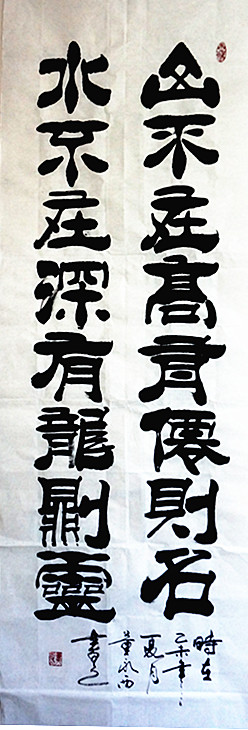 山不在高有僊則名
水不在深有龍則靈
時在
乙未年
夏月
董永西
書之